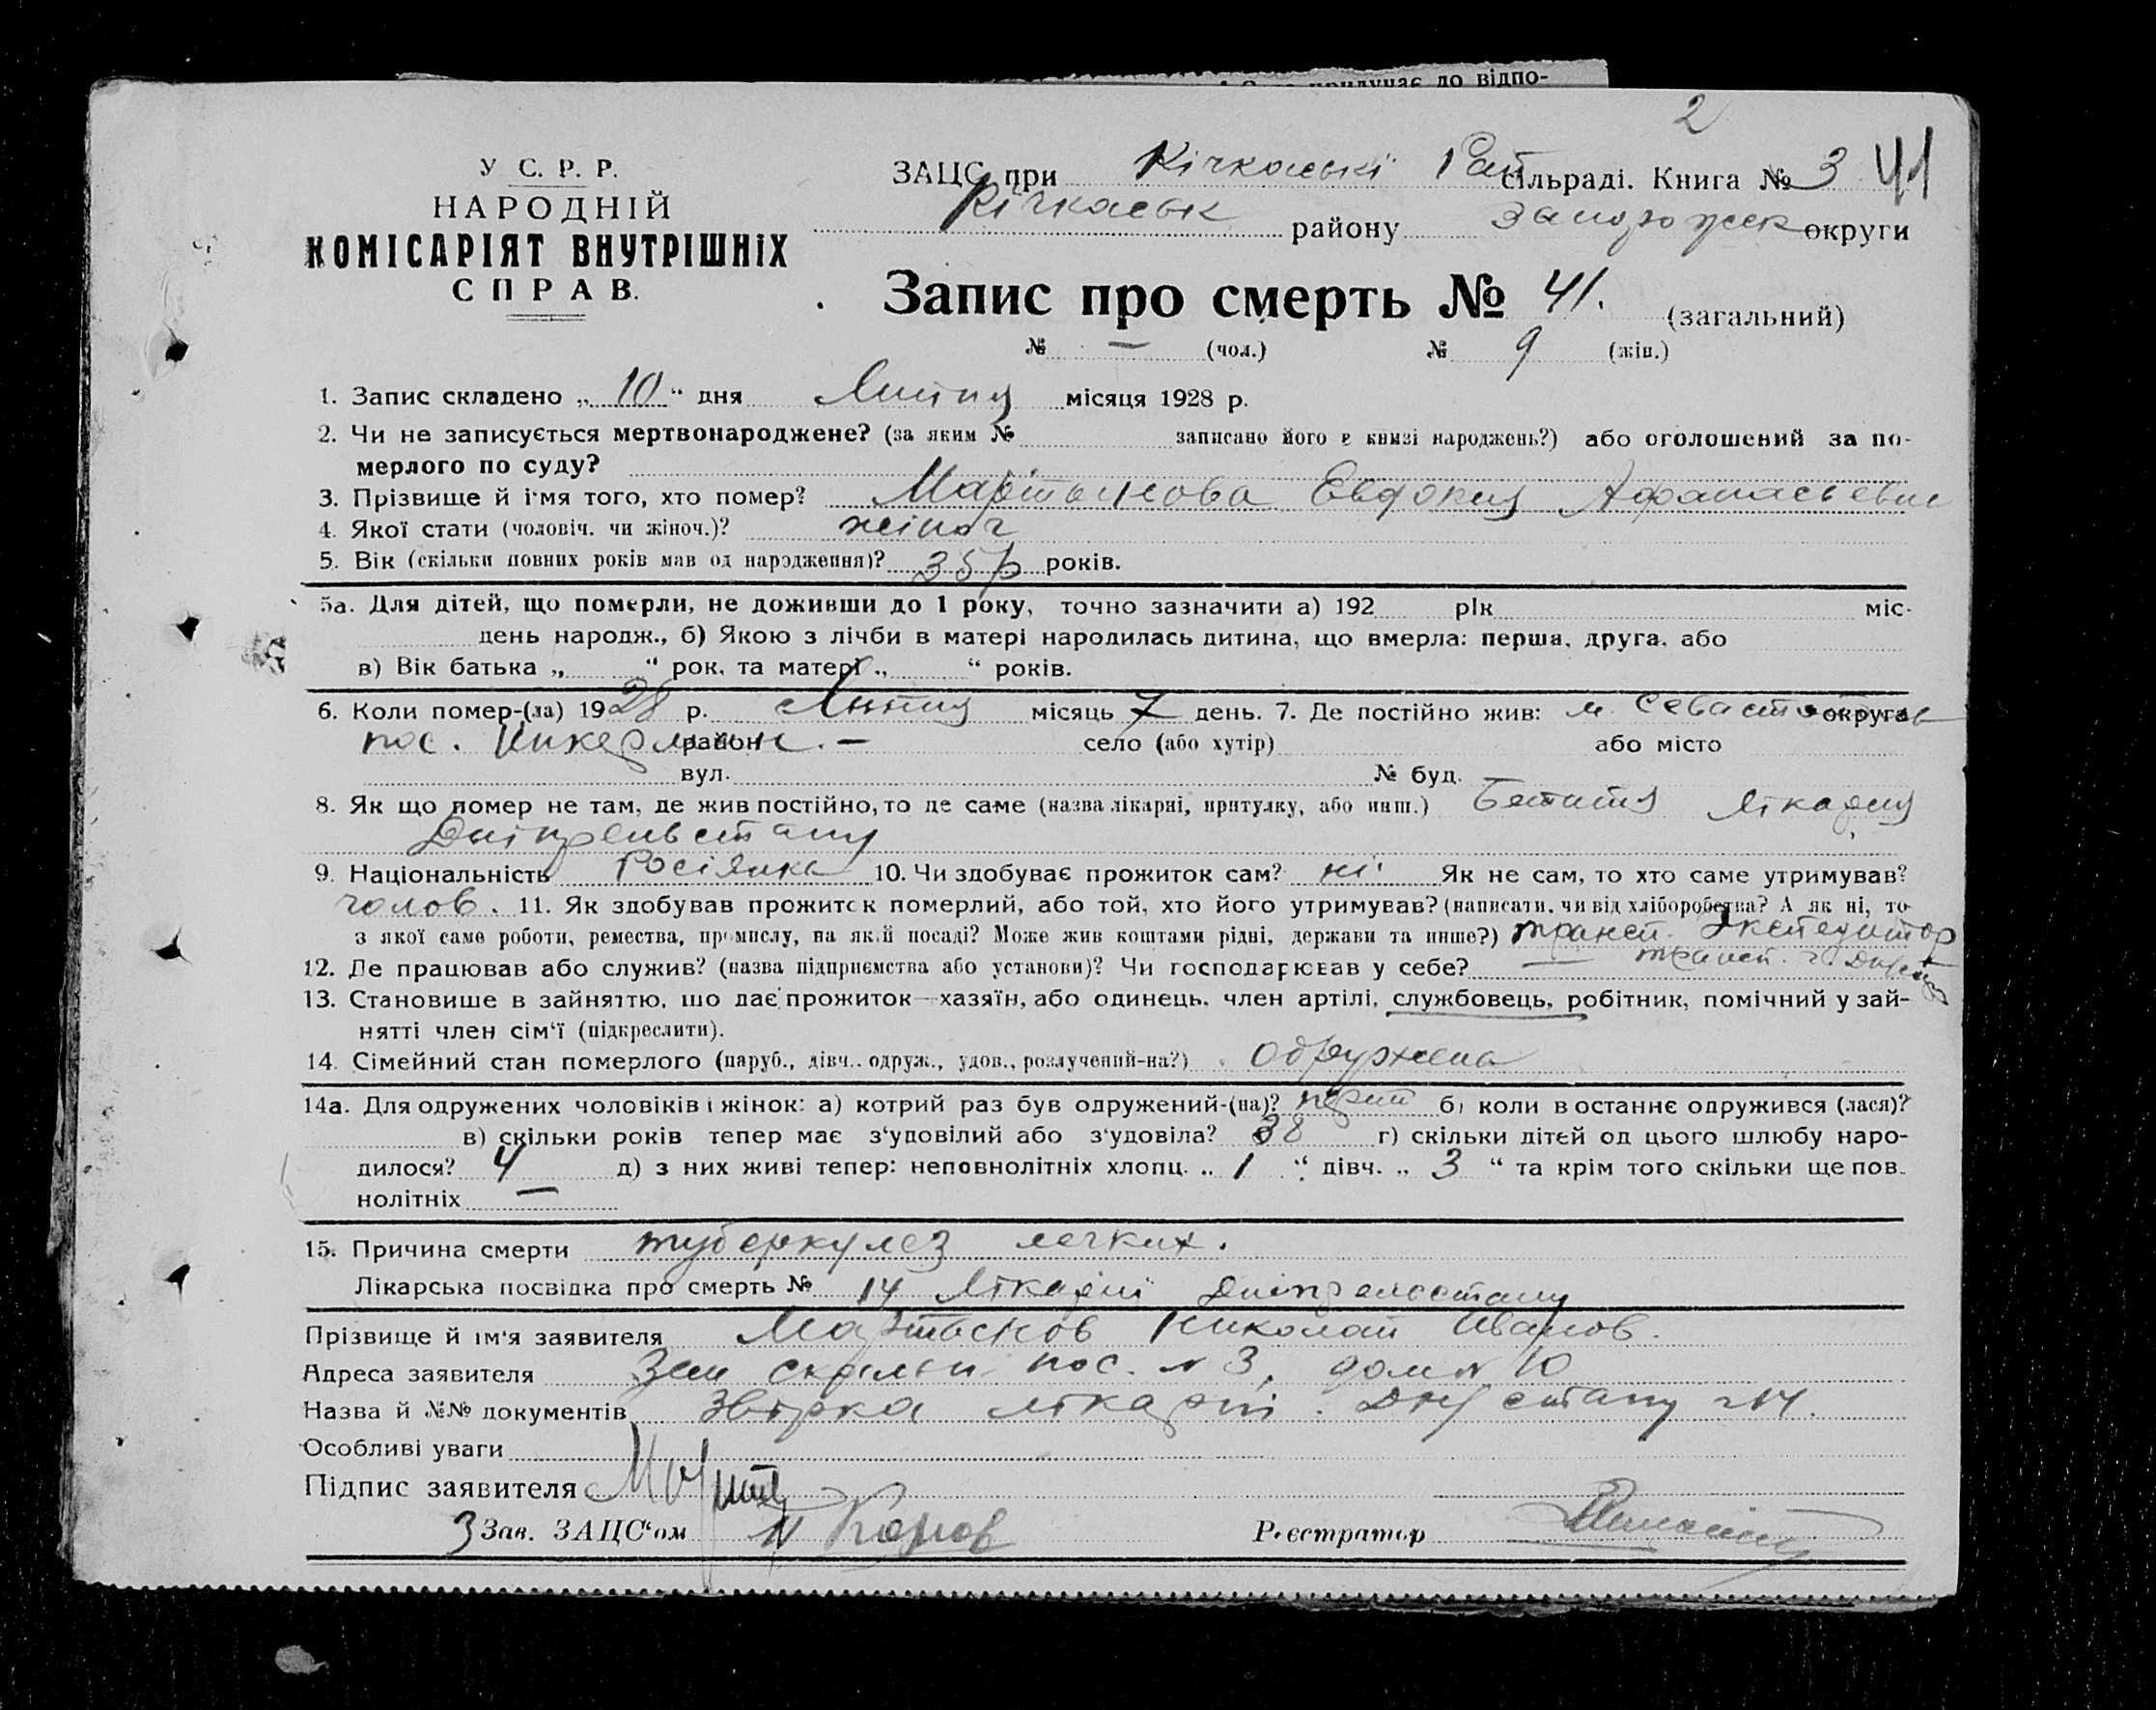 2
У С. Р. Р.
НАРОДНІЙ
КОМІСАРІЯТ ВНУТРІШНІХ
СПРАВ.
ЗАЦС при Кічкаській Рай сільраді. Книга № 3 41
Кічкаськ району Запорожск округи
Запис про смерть № 41. (загальний)
№ — (чол.) № 9 (жін.)
1. Запис складено „ 10 “ дня Липня місяця 1928 р.
2. Чи не записується мертвонароджене? (за яким № записано його в книзі народжень?) або оголошений за по-
мерлого по суду?
3. Прізвище й ім'я того, хто помер? Мартынова Евдокия Афанасьевн
4. Якої стати (чоловіч. чи жіноч.)? жіноч
5. Вік (скільки повних років мав од народження)? 35 р років.
5а. Для дітей, що померли, не доживши до 1 року, точно зазначити а) 192 рік міс-
день народж., б) Якою з лічби в матері народилась дитина, що вмерла: перша, друга, або
в) Вік батька „ “ рок, та матері „ “ років.
6. Коли помер-(ла) 1928 р. Липня місяць 7 день. 7. Де постійно жив: м. Севастополь округа
пос. Инкерман. — район село (або хутір) або місто
вул. № буд.
8. Як що помер не там, де жив постійно, то де саме (назва лікарні, притулку, або инш.) лікарня
Дніпрельстану
9. Національність Росіянка 10. Чи здобуває прожиток сам? ні Як не сам, то хто саме утримував?
чолов. 11. Як здобував прожиток померлий, або той, хто його утримував? (написати, чи від хліборобства? А як ні, то
з якої саме роботи, ремества, промислу, на якій посаді? Може жив коштами рідні, держави та инше?) трансп. Экспедитор
12. Де працював або служив? (назва підприємства або установи)? Чи господарював у себе? — трансп.
13. Становище в зайняттю, що дає прожиток—хазяїн, або одинець, член артілі, службовець, робітник, помічний у зай-
нятті член сім'ї (підкреслити).
14. Сімейний стан померлого (паруб., дівч., одруж., удов., розлучений-на?) одружена
14а. Для одружених чоловіків і жінок: а) котрий раз був одружений-(на)? перш б) коли в останнє одружився (лася)?
в) скільки років тепер має з'удовілий або з'удовіла? 38 г) скільки дітей од цього шлюбу наро-
дилося? 4 д) з них живі тепер: неповнолітніх хлопц. „ 1 “ дівч. „ 3 “ та крім того скільки ще пов-
нолітніх —
15. Причина смерти туберкулез легких.
Лікарська посвідка про смерть № 14 Лікарні Дніпрельстану
Прізвище й ім'я заявителя Мартынов Николай Иванов.
Адреса заявителя пос. № 3, дом № 10
Назва й №№ документів лікарні стану №14.
Особливі уваги
Підпис заявителя Март
З Зав. ЗАЦС'ом
Реєстратор